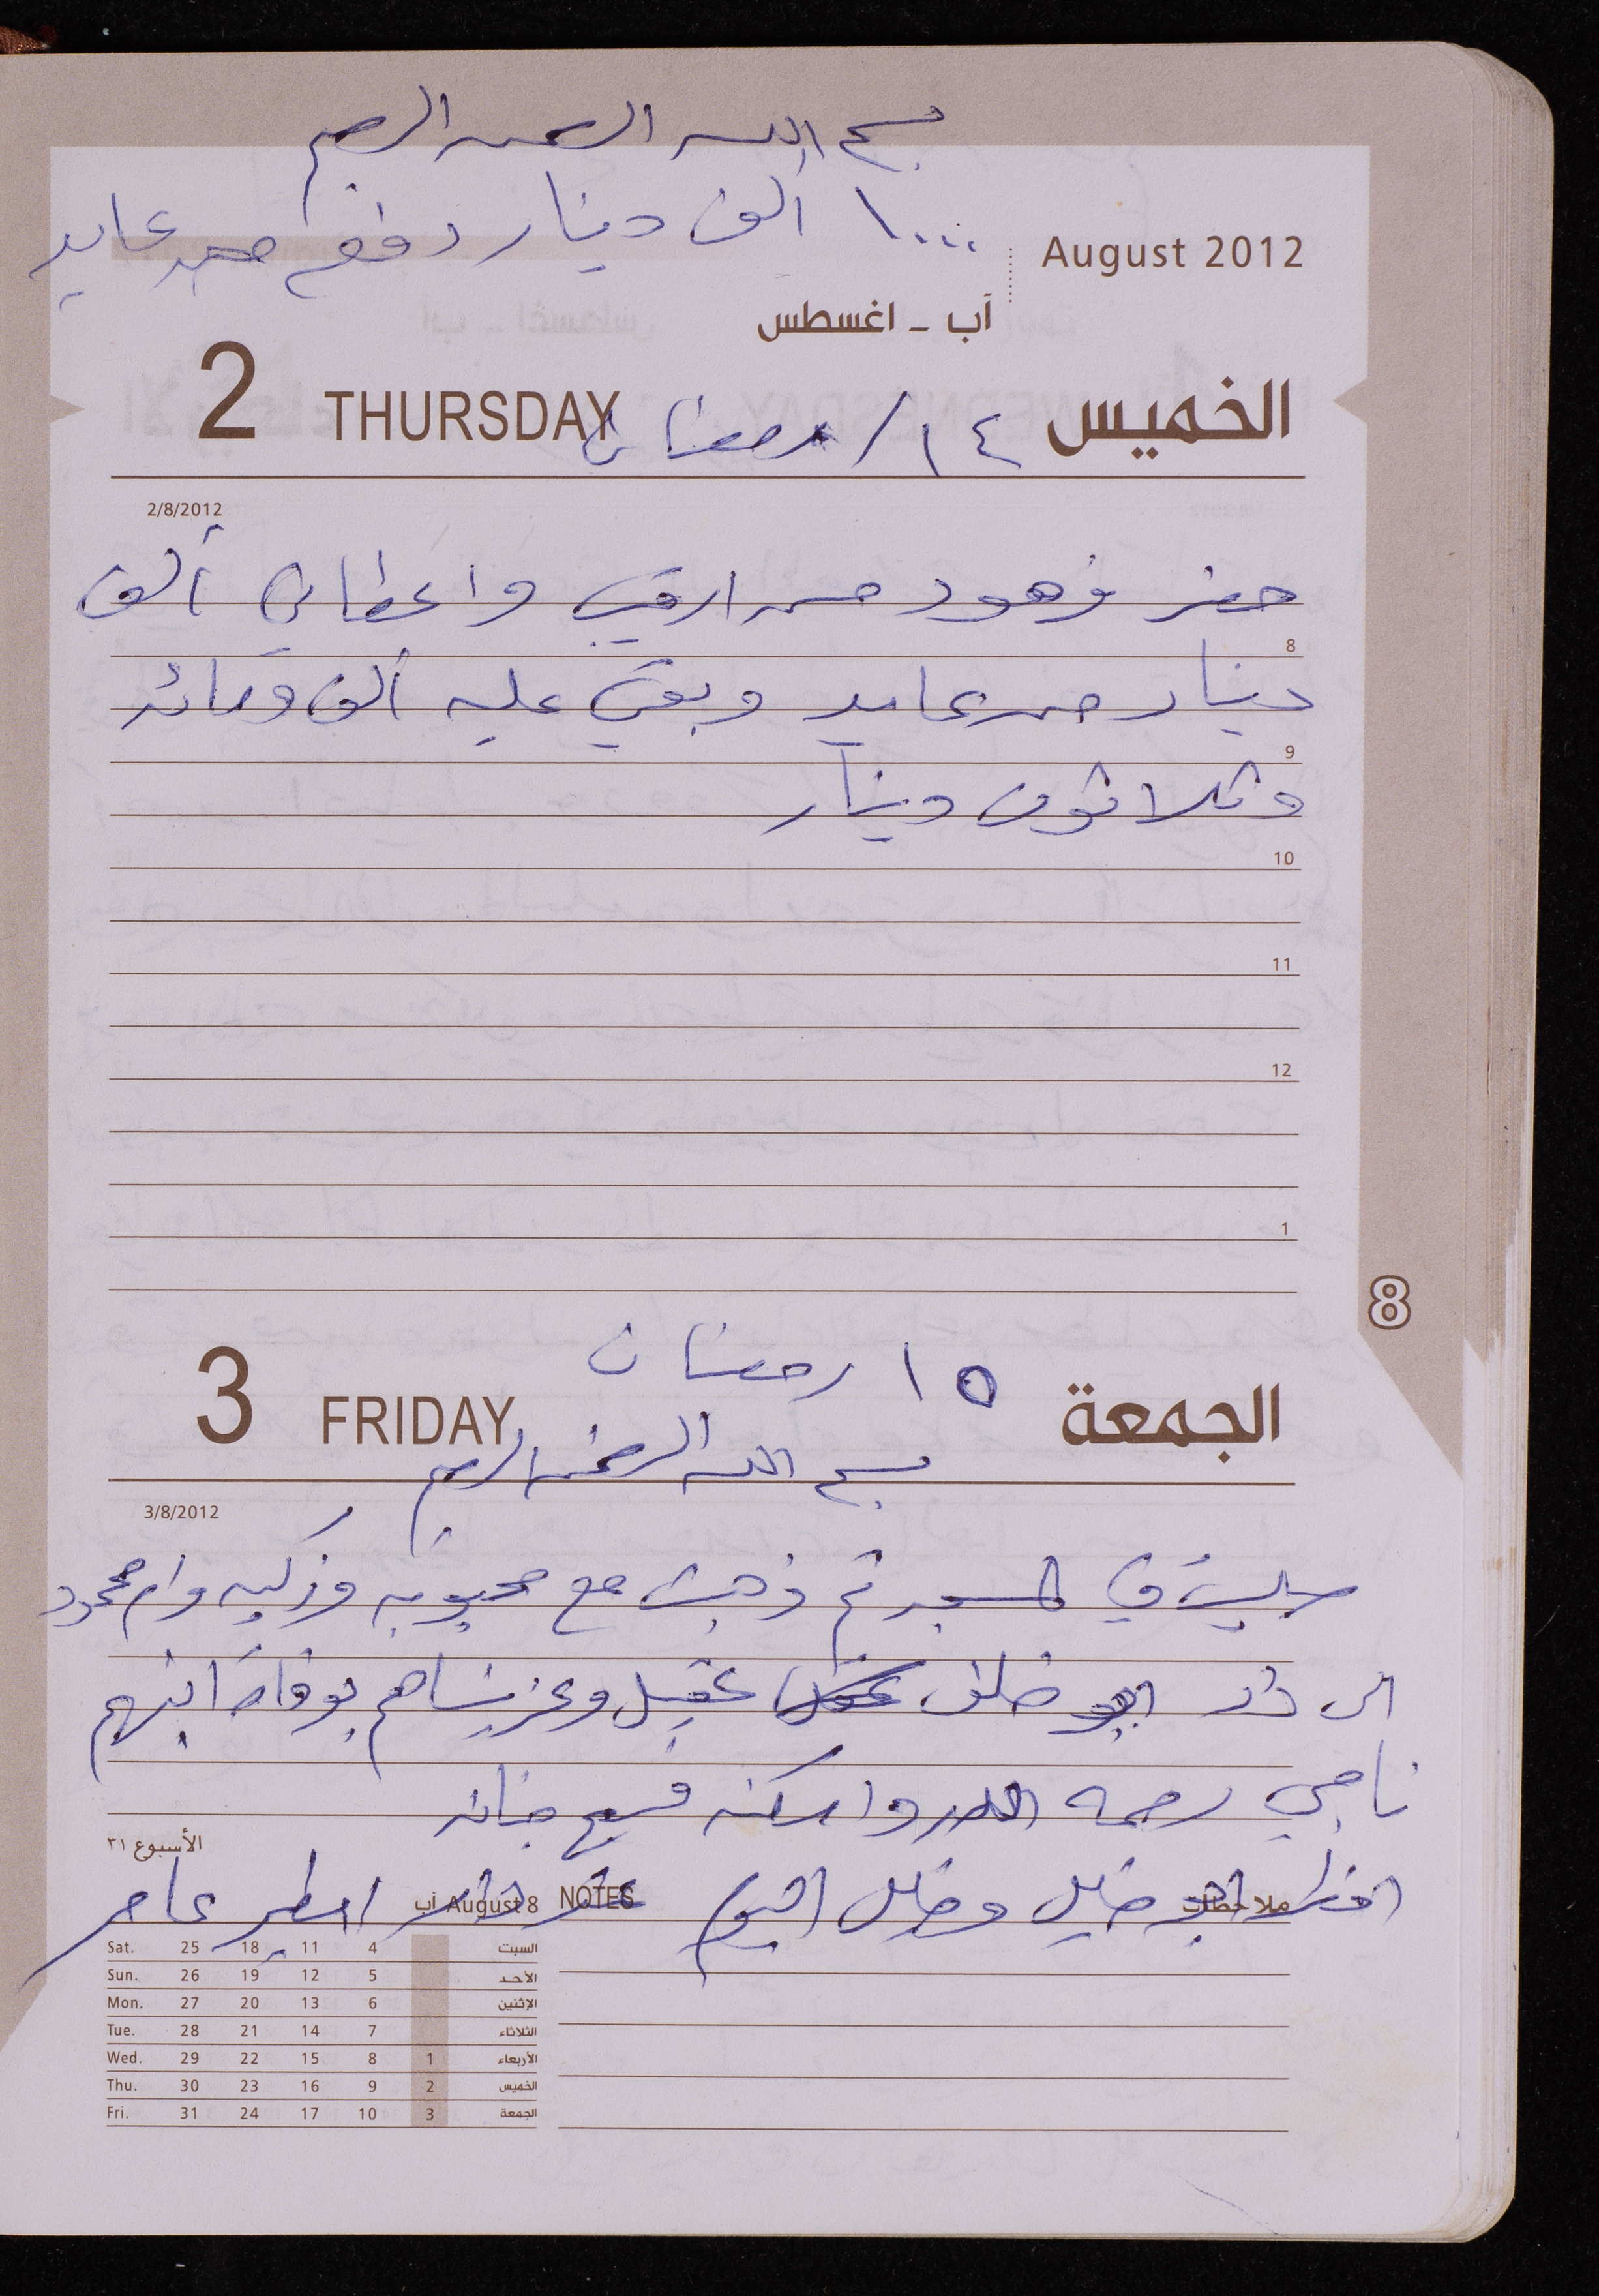 بسم الله الرحمن الرحيم
١٠٠٠ ألف دينار دفع حمد عايد
August 2012
آب - اغسطس
2 THURSDAY ١٤ / رمضان الخميس
2/8/2012
حضر فهود من اربد واعطاني ألف
8
دينار حمد عايد وبقي عليه ألف ومائه
9
وثلاثون دينار
10
11
12
1
8
١٥ رمضان
3 FRIDAY الجمعة
بسم الله الرحمن الرحيم
3/8/2012
صليت في المسجد ثم ذهبت مع محبوبه وزكيه وام محمود
الى دار ابو خلف عقيل وعزيناهم بوفاة ابنهم
ناجي رحمه الله واسكنه فسيح جنانه
الأسبوع ٣١
افطر ابو خليل وخليل اليوم عند دار امطير عامر
ملاحظات NOTES
آب August 8
Sat. 25 18 11 4 السبت
Sun. 26 19 12 5 الأحد
Mon. 27 20 13 6 الإثنين
Tue. 28 21 14 7 الثلاثاء
Wed. 29 22 15 8 1 الأربعاء
Thu. 30 23 16 9 2 الخميس
Fri. 31 24 17 10 3 الجمعة